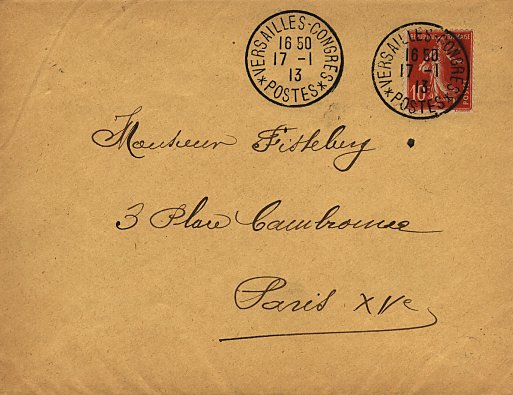 VERSAILLES-CONGRÈS
16 50
17 -1
13
*POSTES*
VERSAILLES-CONGRÈS
16 50
17 -1
13
*POSTES*
10
POSTES
Monsieur Fisteberg
3 Place Cambronne
Paris XVe